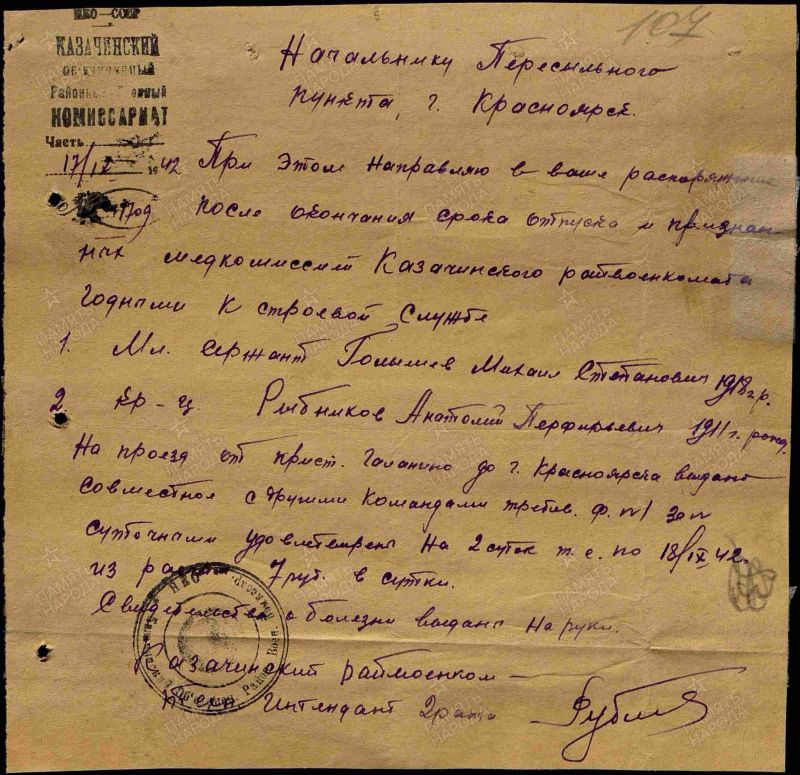 107
НКО-СССР
КАЗАЧИНСКИЙ
КОМИССАРИАТ
Часть
17/IX 1942
Начальнику Пересыльного
пункта, г. Красноярск.
При этом направляю в ваше распоряжение
после окончания срока отпуска и признан-
ных медкомиссией Казачинского райвоенкомата
годными к строевой службе
1. Мл. сержант Голышев Михаил Степанович 1918 г.р.
2. Кр-ц. Рыбников Анатолий Перфирьевич 1911 г. рожд.
На проезд от прист. Галанино до г. Красноярска выдано
совместное с другими командами требов. ф. №1 за №
суточными удовлетворены на 2 суток т.е. по 18/IX 42
из 7 руб. в сутки.
Свидетельства о болезни выданы на руки.
Казачинский райвоенком –
Интендант 2 ранга
ПАМЯТЬ НАРОДА